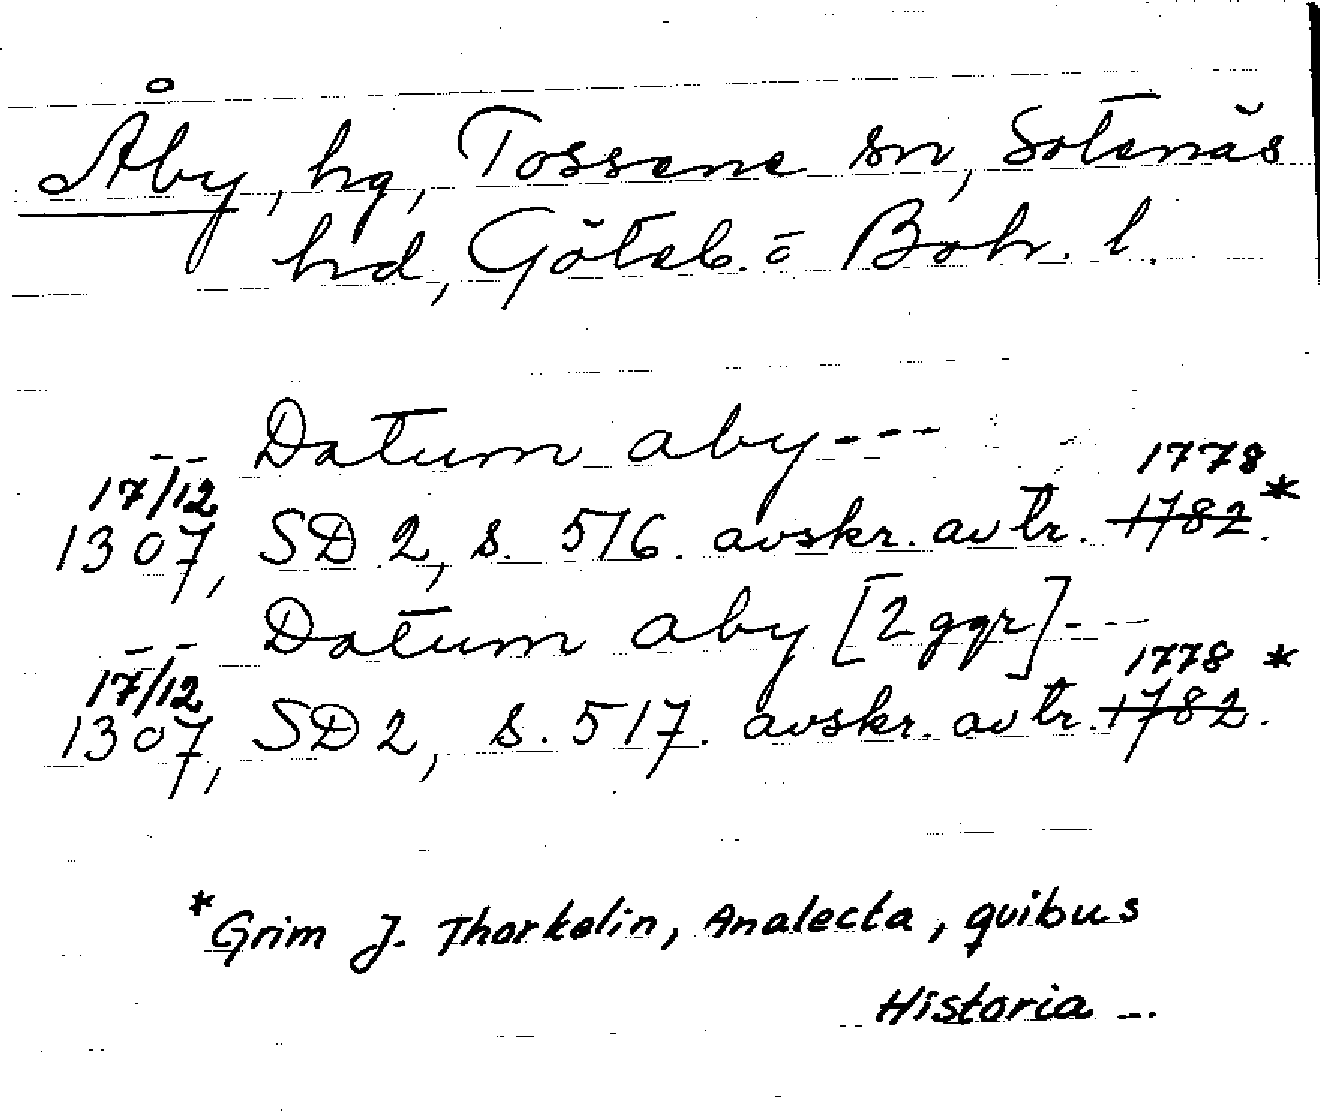 Åby, hg, Tossene sn, Sotenäs
hd, Göteb. o Boh. l.
Datum aby ---
17/12 1778
1307, SD 2, s. 516. avskr. av tr. 1782.*
Datum aby [2 ggr] ---
17/12 1778 *
1307, SD 2, s. 517. avskr. av tr. 1782.
* Grim J. Thorkelin, Analecta, quibus
Historia ...